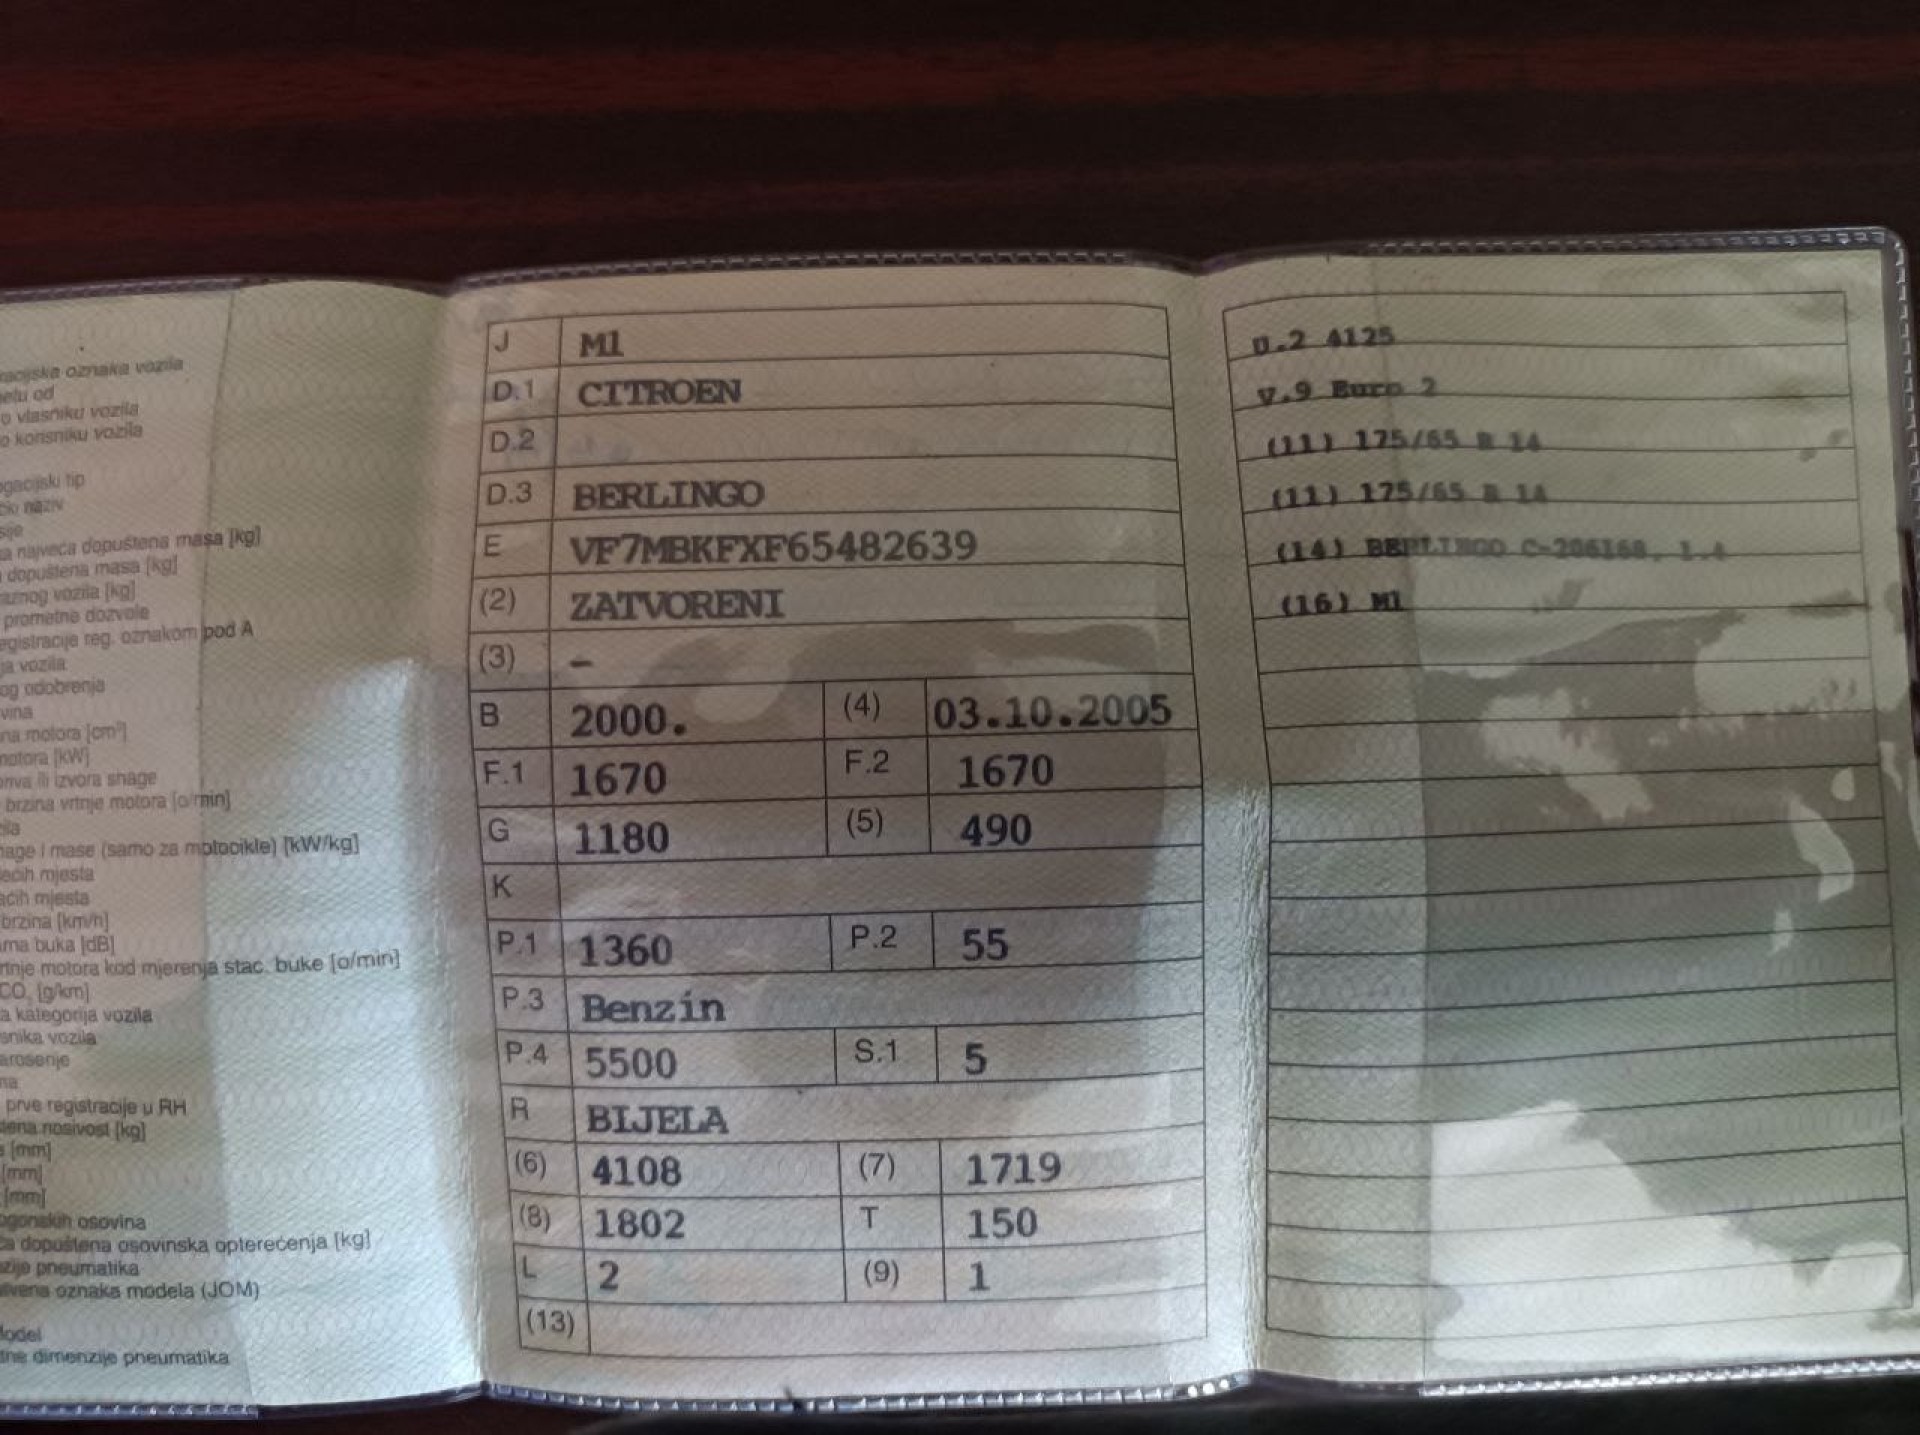 oznaka vozila
od
o vlasniku vozila
o korisniku vozila
tip
naziv
najveća dopuštena masa [kg]
dopuštena masa [kg]
vozila [kg]
prometne dozvole
reg. oznakom pod A
vozila
odobrenja
motora [cm³]
[kW]
ili izvora snage
brzina vrtnje motora [o/min]
i mase (samo za motocikle) [kW/kg]
mjesta
mjesta
brzina [km/h]
buka [dB]
motora kod mjerenja stac. buke [o/min]
CO₂ [g/km]
kategorija vozila
vozila
prve registracije u RH
nosivost [kg]
[mm]
[mm]
[mm]
osovina
dopuštena osovinska opterećenja [kg]
pneumatika
oznaka modela (JOM)
dimenzije pneumatika
J M1
D.1 CITROEN
D.2
D.3 BERLINGO
E VF7MBKFXF65482639
(2) ZATVORENI
(3) -
B 2000. (4) 03.10.2005
F.1 1670 F.2 1670
G 1180 (5) 490
K
P.1 1360 P.2 55
P.3 Benzin
P.4 5500 S.1 5
R BIJELA
(6) 4108 (7) 1719
(8) 1802 T 150
L 2 (9) 1
(13)
D.2 4125
V.9 Euro 2
(11) 175/65 R 14
(11) 175/65 R 14
(14) BERLINGO
(16) M1